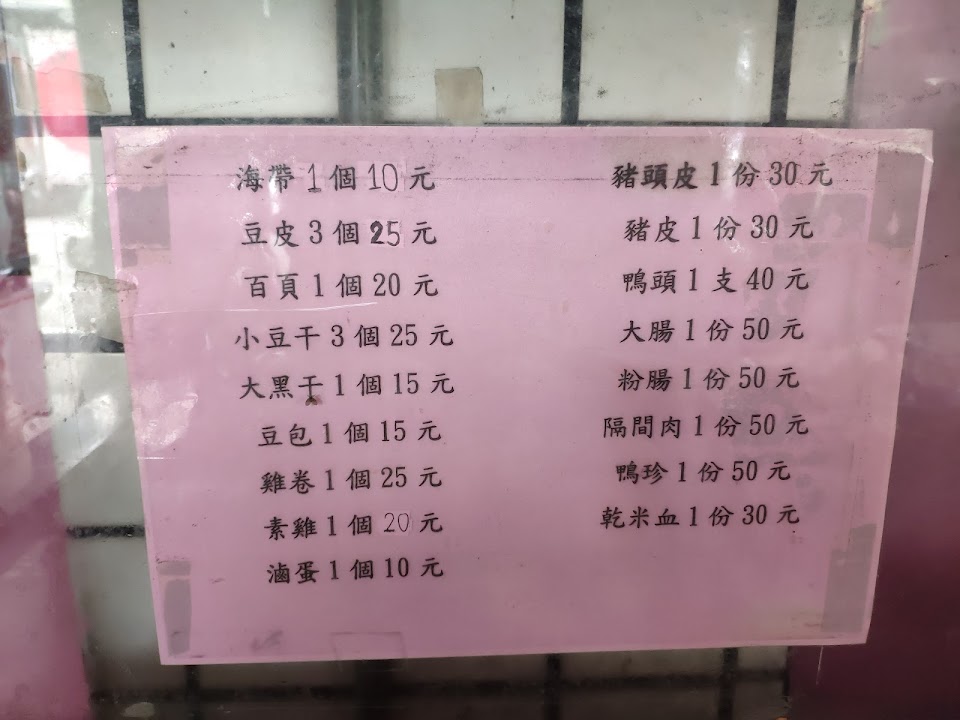 海帶1個10元
豆皮3個25元
百頁1個20元
小豆干3個25元
大黑干1個15元
豆包1個15元
雞卷1個25元
素雞1個20元
滷蛋1個10元
豬頭皮1份30元
豬皮1份30元
鴨頭1支40元
大腸1份50元
粉腸1份50元
隔間肉1份50元
鴨珍1份50元
乾米血1份30元